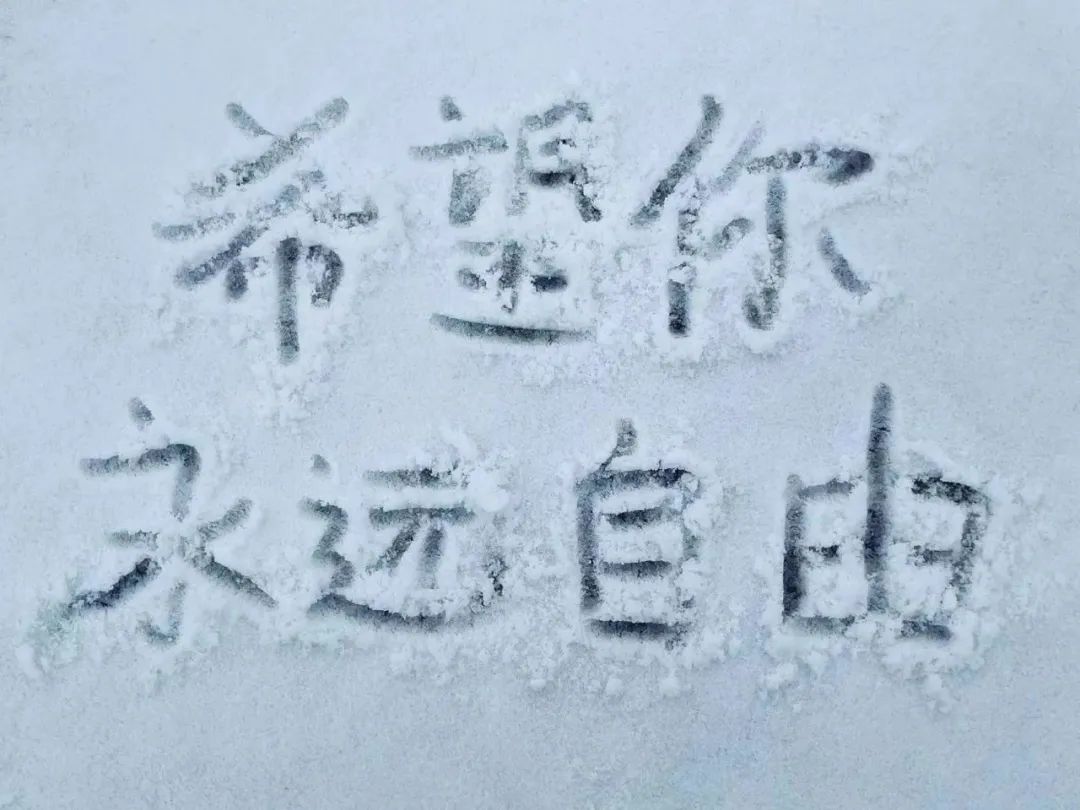 希望你
永远自由